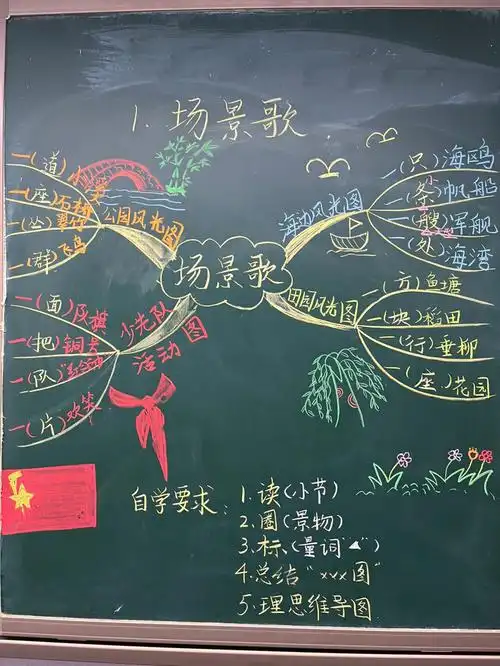 1. 场景歌
场景歌
公园风光图
一(道)小溪
一(座)石桥
一(丛)翠竹
一(群)飞鸟
海边风光图
一(只)海鸥
一(条)帆船
一(艘)军舰
一(处)海湾
少先队
活动图
一(面)队旗
一(把)铜号
一(队)
一(片)欢笑
田园风光图
一(方)鱼塘
一(块)稻田
一(行)垂柳
一(座)花园
自学要求:
1.读(小节)
2.圈(景物)
3.标(量词"▲")
4.总结"xxx图"
5.理思维导图